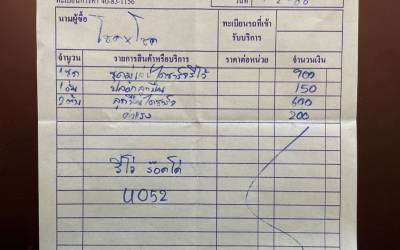 ทะเบียนการค้า 40-83-1156
วันที่
นามผู้ซื้อ โชค x โชค
ทะเบียนรถที่เข้ารับบริการ
จำนวน รายการสินค้าหรือบริการ ราคาต่อหน่วย จำนวนเงิน
1 ชุด 900
1 อัน 150
ลูกปืนไดชาร์จ 400
ค่าแรง 200
รีโว่ ร๊อคโค่
U052